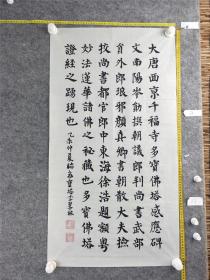 大唐西京千福寺多寶佛塔感應碑
文南陽岑勛撰朝議郎判尚書武部
員外郎琅邪顏真卿書朝散大夫撿
校尚書都官郎中東海徐浩題額粵
妙法蓮華諸佛之秘藏也多寶佛塔
證經之踴現也